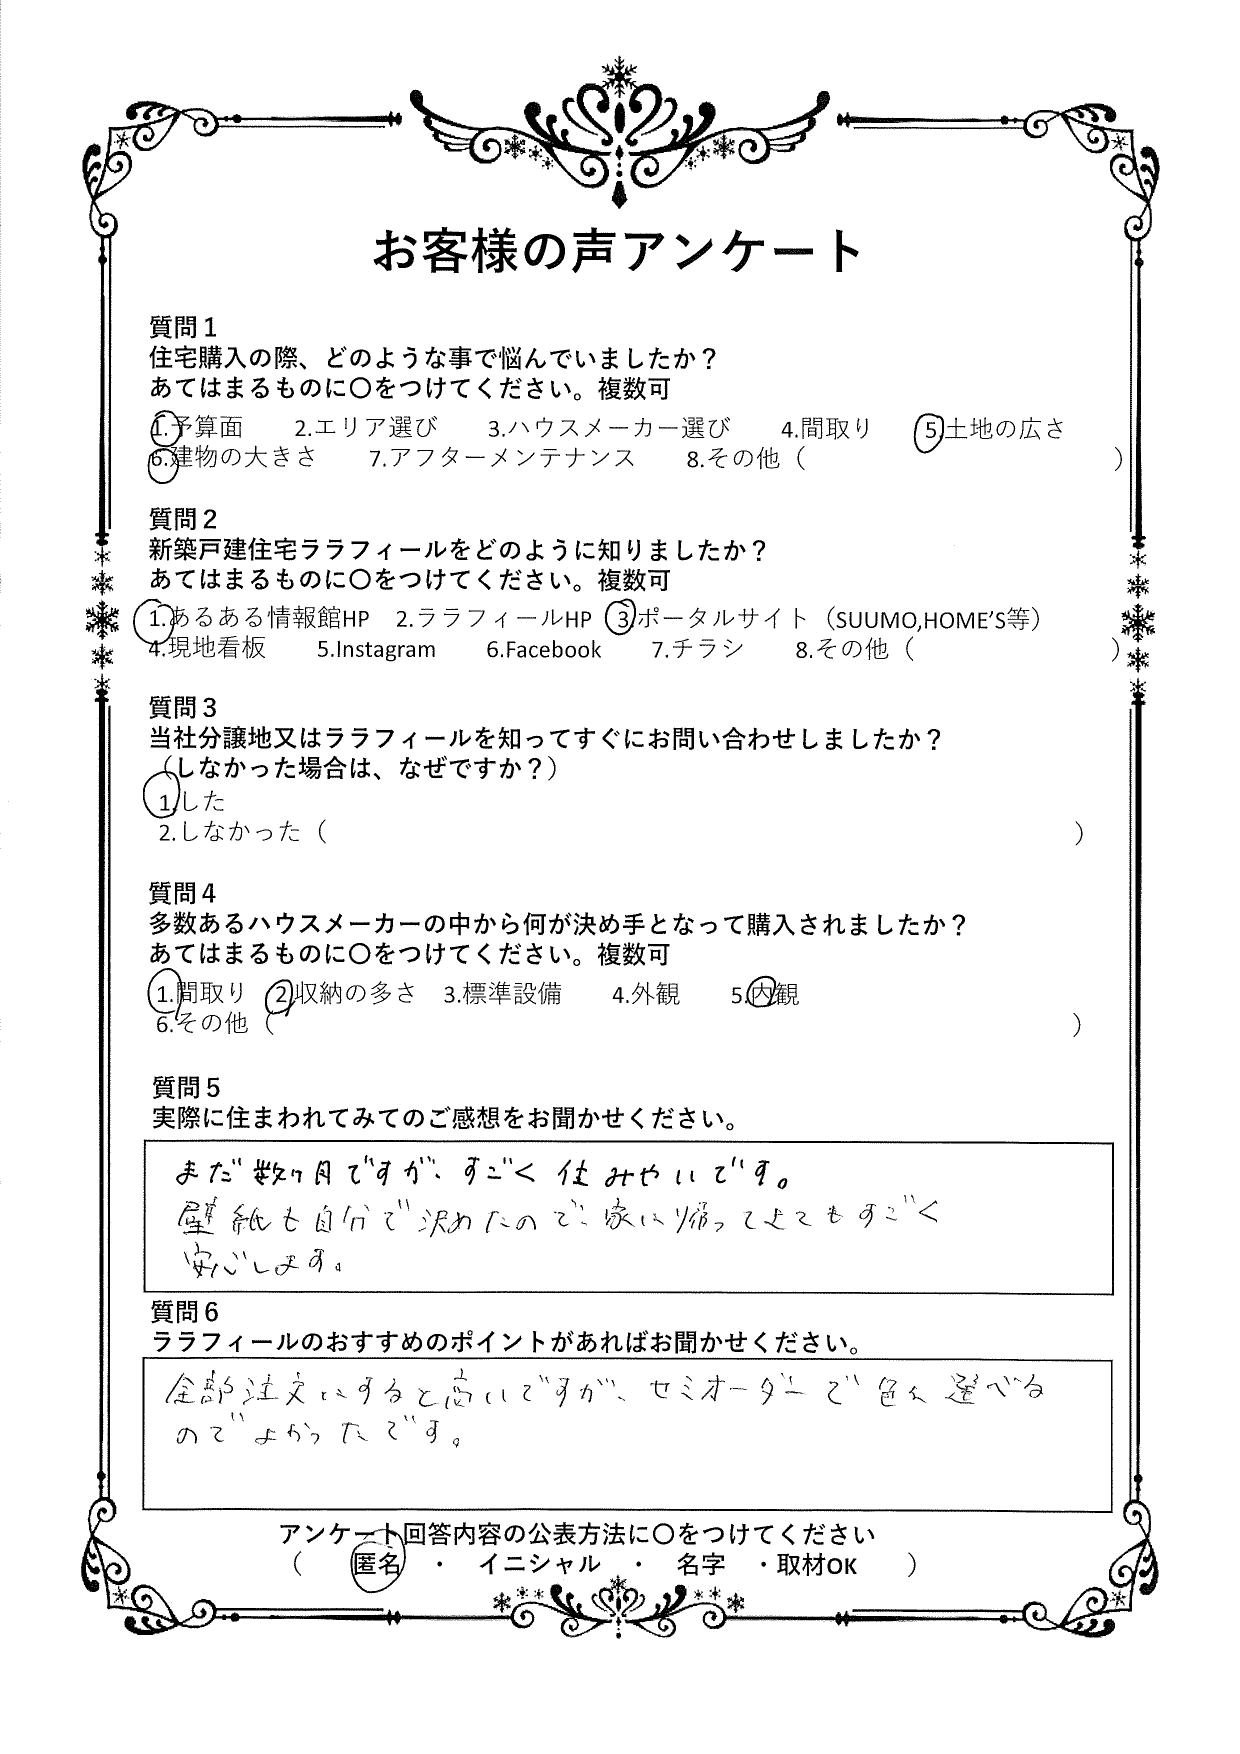 お客様の声アンケート
質問１
住宅購入の際、どのような事で悩んでいましたか？
あてはまるものに〇をつけてください。複数可
1.予算面　2.エリア選び　3.ハウスメーカー選び　4.間取り　5.土地の広さ
6.建物の大きさ　7.アフターメンテナンス　8.その他（　）
質問２
新築戸建住宅ララフィールをどのように知りましたか？
あてはまるものに〇をつけてください。複数可
1.あるある情報館HP　2.ララフィールHP　3.ポータルサイト（SUUMO,HOME'S等）
4.現地看板　5.Instagram　6.Facebook　7.チラシ　8.その他（　）
質問３
当社分譲地又はララフィールを知ってすぐにお問い合わせしましたか？
（しなかった場合は、なぜですか？）
1.した
2.しなかった（　）
質問４
多数あるハウスメーカーの中から何が決め手となって購入されましたか？
あてはまるものに〇をつけてください。複数可
1.間取り　2.収納の多さ　3.標準設備　4.外観　5.内観
6.その他（　）
質問５
実際に住まわれてみてのご感想をお聞かせください。
まだ数ヶ月ですが、すごく住みやいです。
壁紙も自分で決めたので、家に帰ってきてもすごく
安心します。
質問６
ララフィールのおすすめのポイントがあればお聞かせください。
全部注文にすると高いですが、セミオーダーで色々選べる
のでよかったです。
アンケート回答内容の公表方法に〇をつけてください
（　匿名　・　イニシャル　・　名字　・取材OK　）